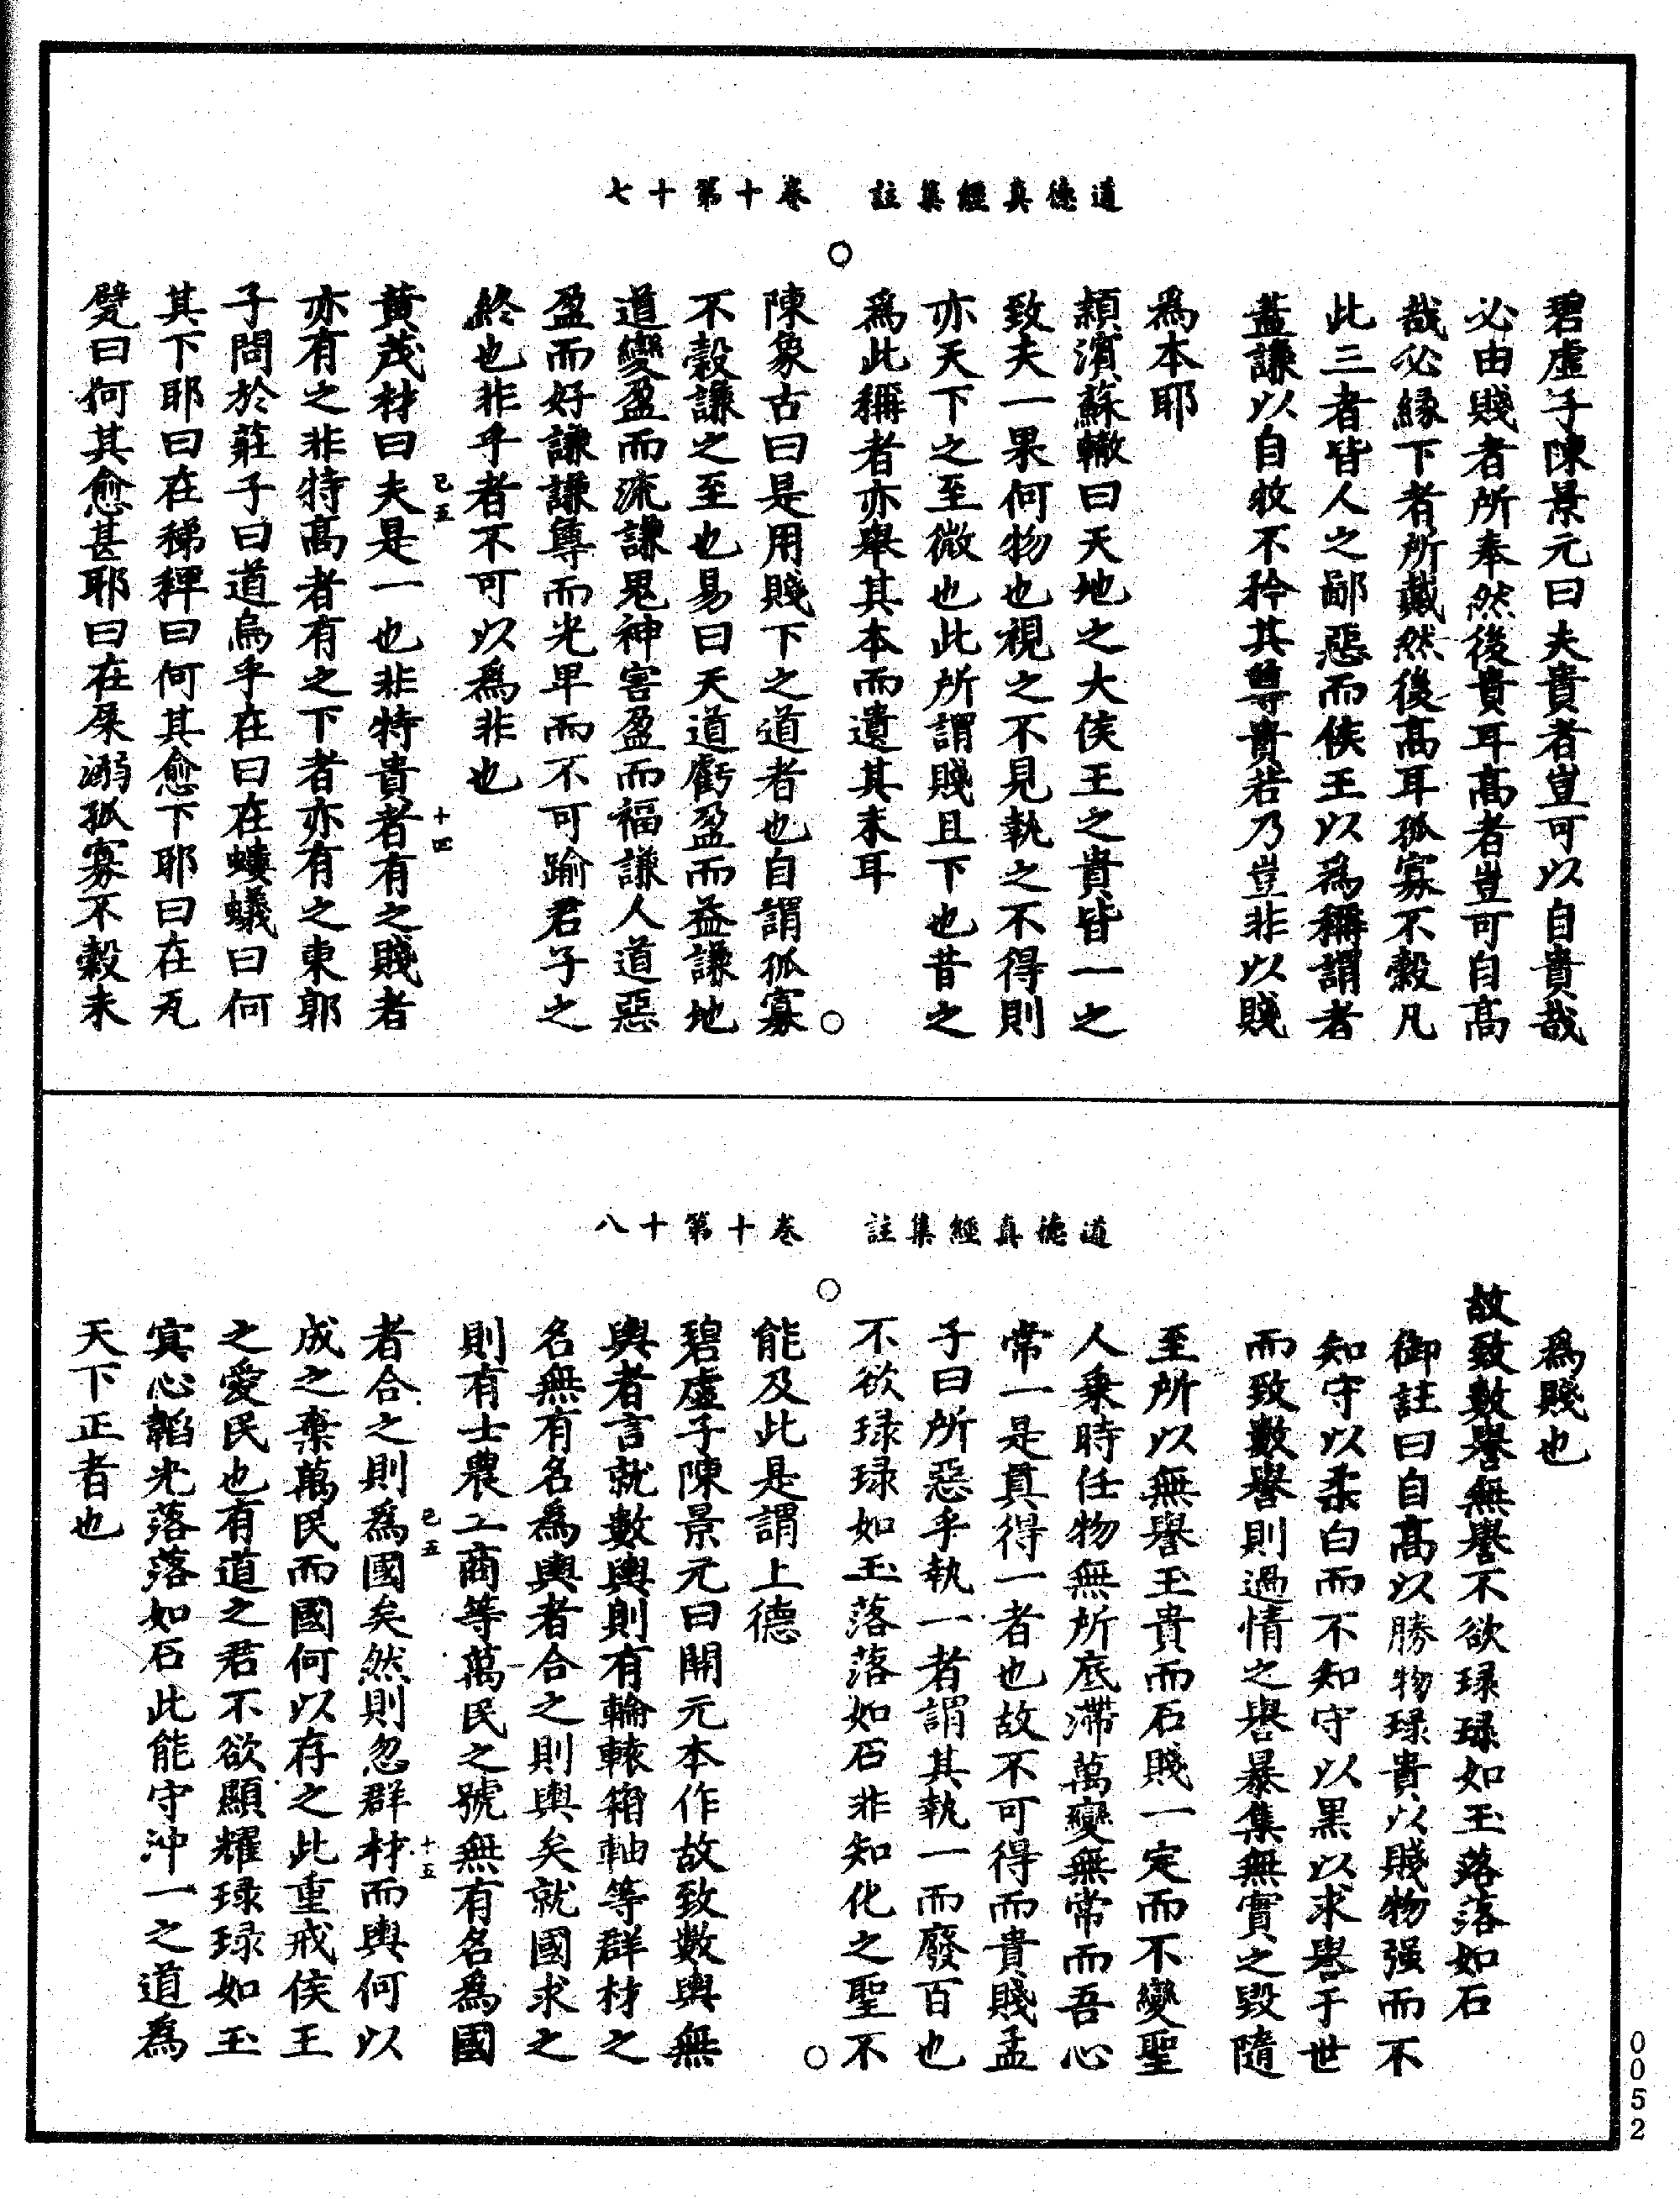 道德真經集註　卷十第十七
碧虛子陳景元曰夫貴者豈可以自貴哉
必由賤者所奉然後貴耳高者豈可自高
哉必緣下者所戴然後高耳孤寡不穀凡
此三者皆人之鄙惡而侯王以爲稱謂者
蓋謙以自牧不矜其尊貴若乃豈非以賤
爲本耶
潁濱蘇轍曰天地之大侯王之貴皆一之
致夫一果何物也視之不見執之不得則
亦天下之至微也此所謂賤且下也昔之
爲此稱者亦舉其本而遺其末耳
陳象古曰是用賤下之道者也自謂孤寡
不穀謙之至也易曰天道虧盈而益謙地
道變盈而流謙鬼神害盈而福謙人道惡
盈而好謙謙尊而光卑而不可踰君子之
終也非乎者不可以爲非也
已五　十四
黃茂材曰夫是一也非特貴者有之賤者
亦有之非特高者有之下者亦有之東郭
子問於莊子曰道烏乎在曰在螻蟻曰何
其下耶曰在稊稗曰何其愈下耶曰在瓦
甓曰何其愈甚耶曰在屎溺孤寡不穀未
道德真經集註　卷十第十八
爲賤也
故致數譽無譽不欲琭琭如玉落落如石
御註曰自高以勝物琭貴以賤物强而不
知守以柔白而不知守以黑以求譽于世
而致數譽則過情之譽暴集無實之毀隨
至所以無譽玉貴而石賤一定而不變聖
人乘時任物無所底滯萬變無常而吾心
常一是真得一者也故不可得而貴賤孟
子曰所惡乎執一者謂其執一而廢百也
不欲琭琭如玉落落如石非知化之聖不
能及此是謂上德
碧虛子陳景元曰開元本作故致數輿無
輿者言就數輿則有輪轅箱軸等群材之
名無有名爲輿者合之則輿矣就國求之
則有士農工商等萬民之號無有名爲國
已五　十五
者合之則爲國矣然則忽群材而輿何以
成之棄萬民而國何以存之此重戒侯王
之愛民也有道之君不欲顯耀琭琭如玉
冥心韜光落落如石此能守沖一之道爲
天下正者也
0052